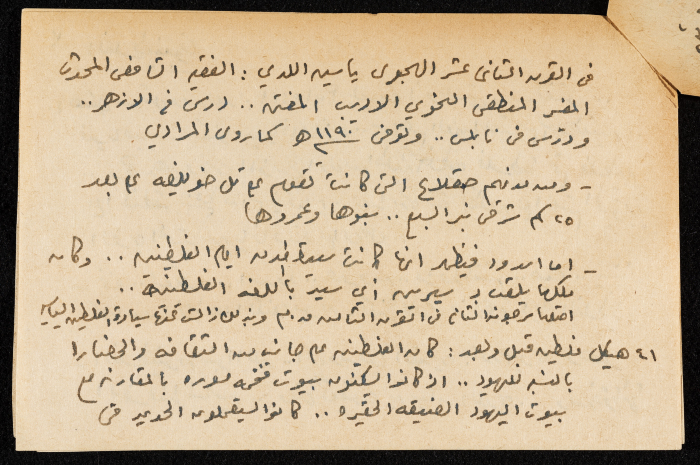 في القرن الثاني عشر الهجري ياسين اللدي : الفقيه الشافعي المحدث
المفسر المنطقي النحوي الاديب المفتي .. درس في الازهر ..
ودرّس في نابلس .. وتوفى ١١٩٠ هـ كما روى المرادي
- ومن مدنهم صقلاع التي كانت تقوم على تل خويلفه على بعد
٢٥ كم شرقي بئر السبع .. بنوها وعمروها
- اما اسدود فيظهر انها كانت سيدة المدن ايام الفلسطينيين .. وكان
ملكها يلقب بـ سيرس أي سيد باللغه الفلسطينية ..
احتلها سرجون الثاني في القرن الثامن ق.م
٤١ هيكل فلسطين قبل وبعد : كان الفلسطينيين على جانب من الثقافه والحضارا
بالنسبه لليهود .. اذ كانوا يسكنون بيوت فخمه بالمقارنه مع
بيوت اليهود الضيقه الحقيره .. كانوا يستعملون الحديد في